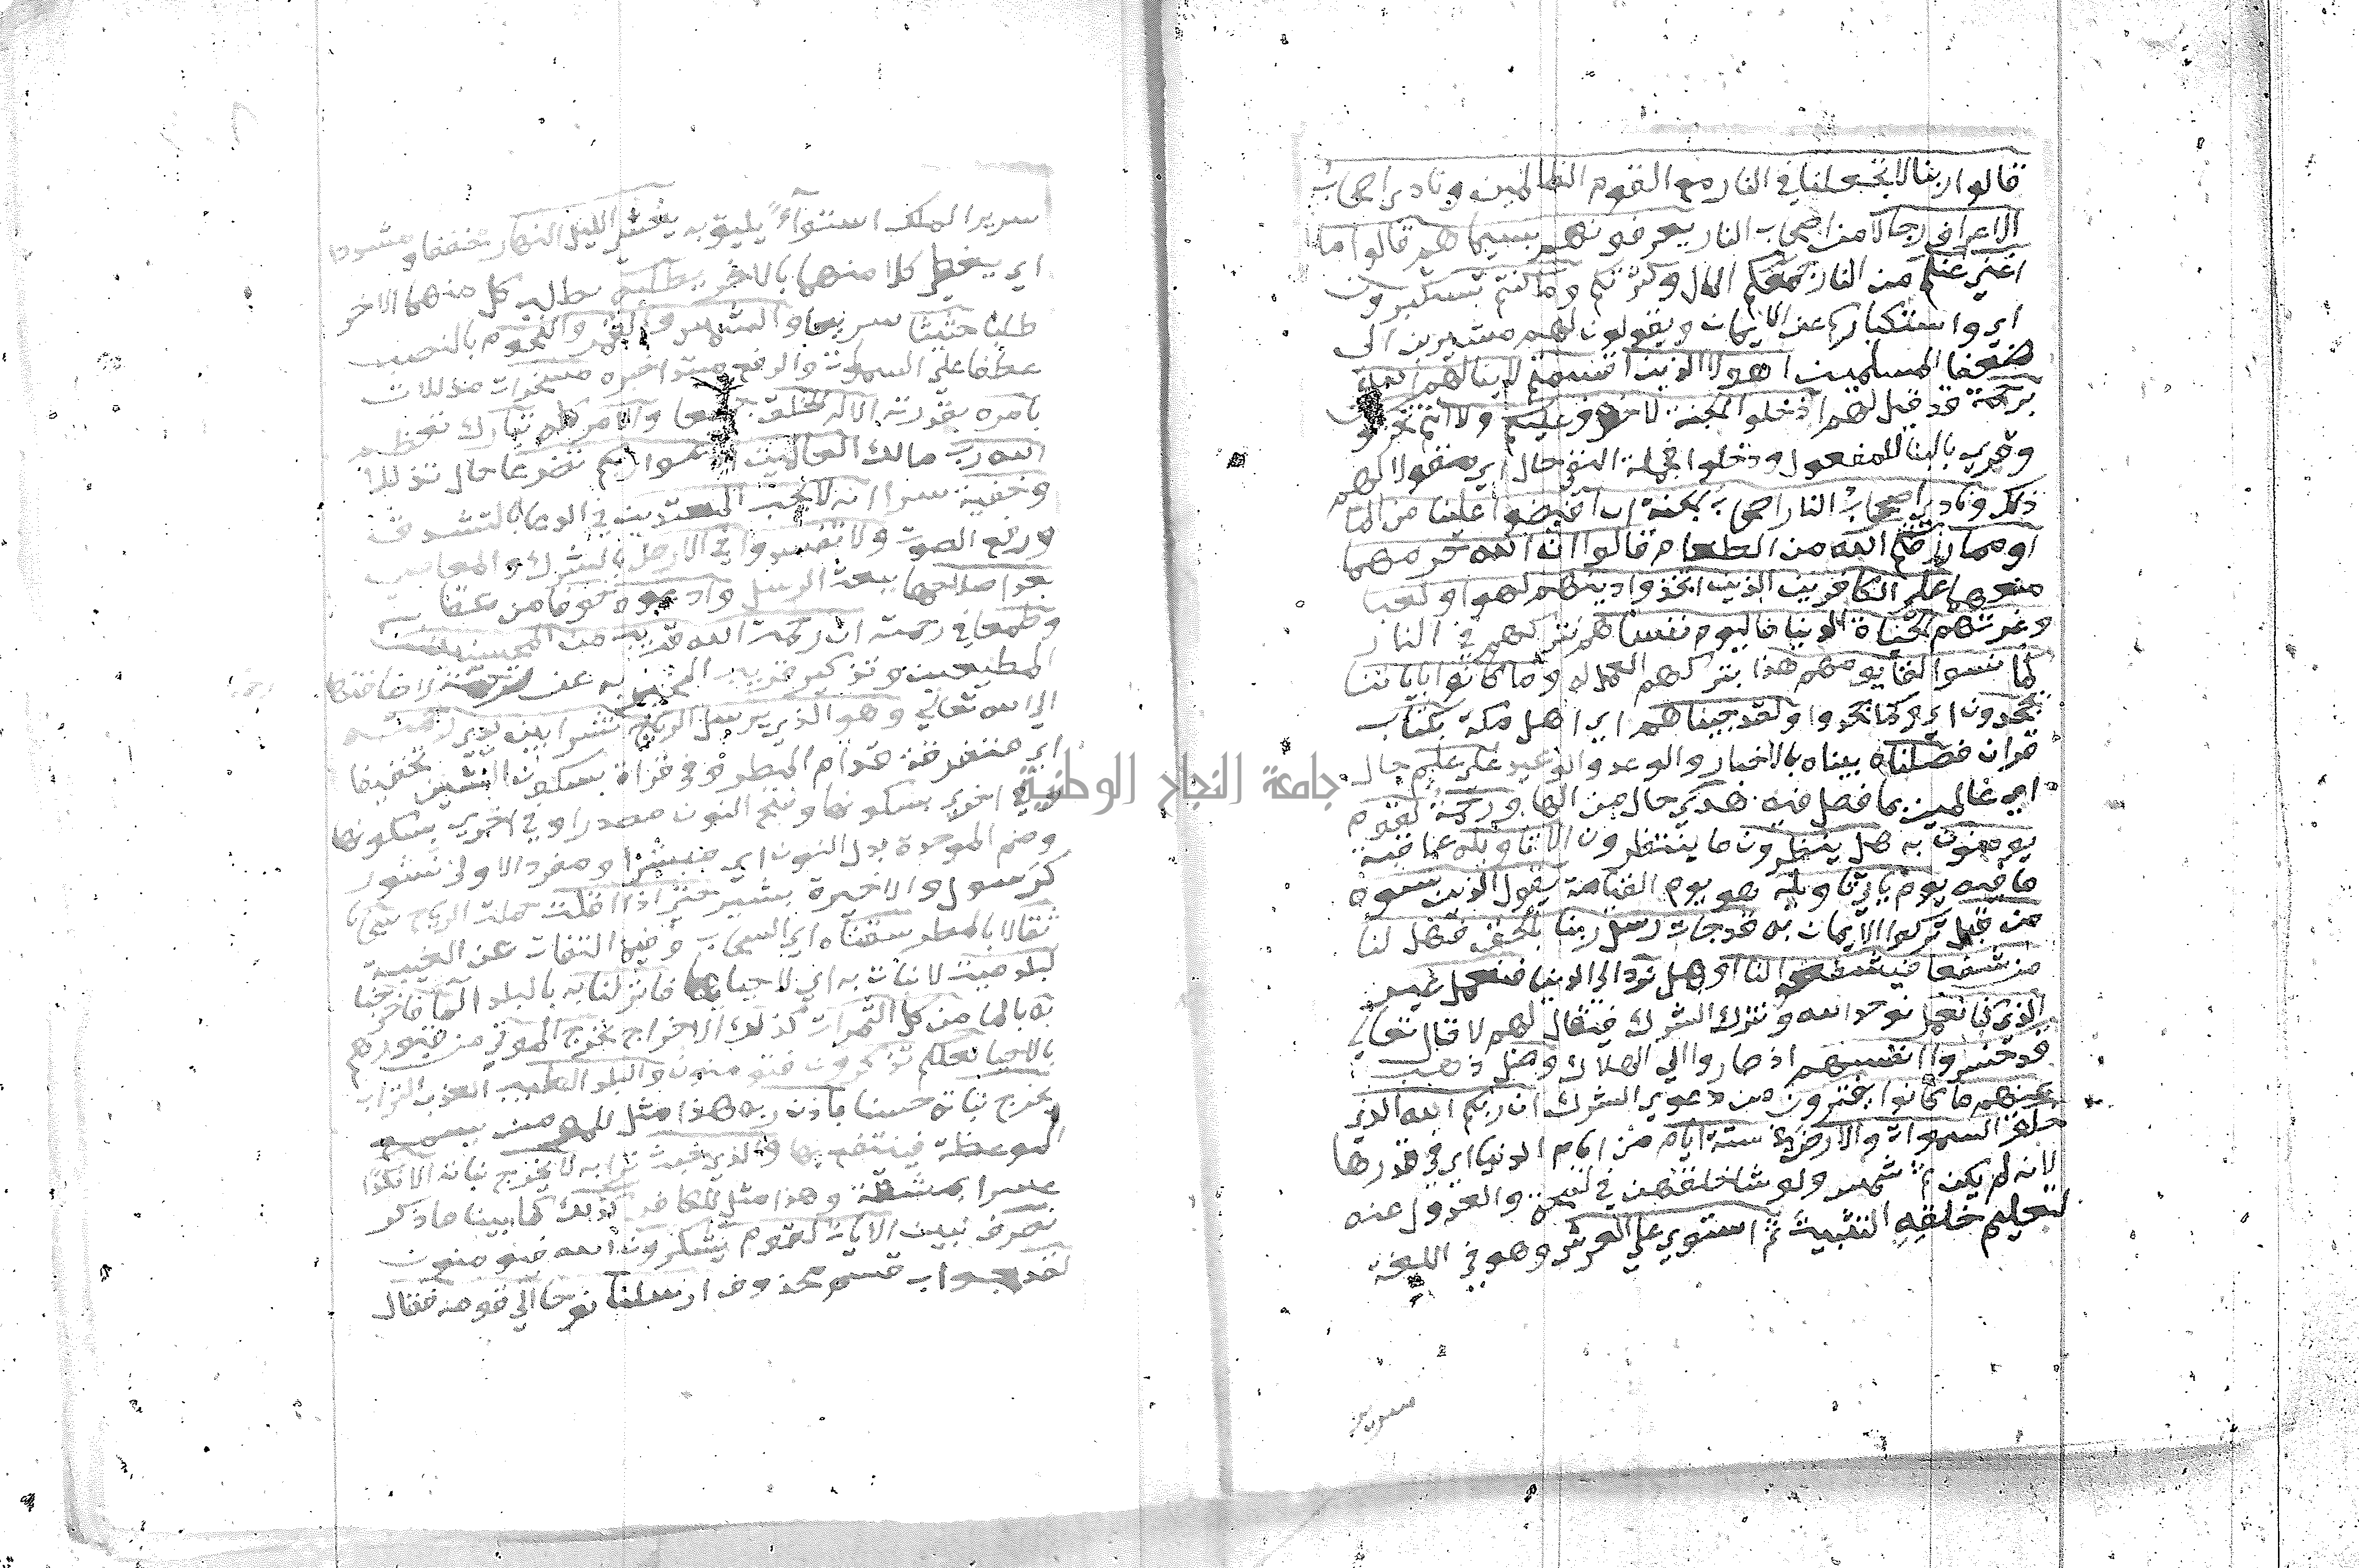 قالوا ربنا لا تجعلنا في النار مع القوم الظالمين ونادى اصحاب
الاعراف رجالا من اصحاب النار يعرفونهم بسيماهم قالوا ما
اغنى عنكم من النار جمعكم المال وكثرتكم وما كنتم تستكبرون
اي واستكباركم عن الايمان ويقولون لهم مشيرين الى
ضعفا المسلمين اهولا الذين اقسمتم لا ينالهم الله
برحمة قد قيل لهم ادخلوا الجنة لا خوف عليكم ولا انتم تحزنون
وقري بالبنا للمفعول ودخلوا فجملة النفي حال اي مقولا لهم
ذلك ونادى اصحاب النار اصحاب الجنة ان افيضوا علينا من الما
او مما رزقكم الله من الطعام قالوا ان الله حرمهما
منعهما على الكافرين الذين اتخذوا دينهم لهوا ولعبا
وغرتهم الحياة الدنيا فاليوم ننساهم نتركهم في النار
كما نسوا لقا يومهم هذا بتركهم العمل له وما كانوا باياتنا
يجحدون اي وكما جحدوا ولقد جيناهم اي اهل مكة بكتاب
قران فصلناه بيناه بالاخبار والوعد والوعيد على علم حال
اي عالمين بما فصل فيه هدى حال من الها ورحمة لقوم
يومنون به هل ينظرون ما ينتظرون الا تاويله عاقبة
ما فيه يوم ياتي تاويله هو يوم القيامة يقول الذين نسوه
من قبل تركوا الايمان به قد جات رسل ربنا بالحق فهل لنا
من شفعا فيشفعوا لنا او هل نرد الى الدنيا فنعمل غير
الذي كنا نعمل نوحد الله ونترك الشرك فيقال لهم لا قال تعالى
قد خسروا انفسهم اذ صاروا الى الهلاك وضل ذهب
عنهم ما كانوا يفترون من دعوى الشرك ان ربكم الله الذي
خلق السموات والارض في ستة ايام من ايام الدنيا اي في قدرها
لانه لم يكن ثم شمس ولو شا خلقهن في لمحة والعدول عنه
لتعليم خلقه التثبيت ثم استوى على العرش وهو في اللغة
سرير
سرير الملك استوآءً يليق به يغشى الليل النهار مخففا ومشددا
اي يغطي كلا منهما بالاخر يطلبه يطلب كل منهما الاخر
طلبا حثيثا سريعا والشمس والقمر والنجوم بالنصب
عطفا على السموات والرفع مبتدا خبره مسخرات مذللات
بامره بقدرته الا له الخلق جميعا والامر كله تبارك تعظم
الله رب مالك العالمين ادعوا ربكم تضرعا حال تذللا
وخفية سرا انه لا يحب المعتدين في الدعا بالتشدق
ورفع الصوت ولا تفسدوا في الارض بالشرك والمعاصي
بعد اصلاحها ببعث الرسل وادعوه خوفا من عقابه
وطمعا في رحمته ان رحمت الله قريب من المحسنين
المطيعين وتذكير قريب المخبر به عن رحمة لاضافتها
الى الله تعالى وهو الذي يرسل الرياح نشرا بين يدي رحمته
اي متفرقة قدام المطر وفي قراة بسكون الشين تخفيفا
وفي اخرى بسكونها وفتح النون مصدرا وفي اخرى بسكونها
وضم الموحدة بدل النون اي مبشرا ومفرد الاولى نشور
كرسول والاخيرة بشير حتى اذا اقلت حملت الرياح سحابا
ثقالا بالمطر سقناه اي السحاب وفيه التفات عن الغيبة
لبلد ميت لا نبات به اي لاحيائها فانزلنا به بالبلد الما فاخرجنا
به بالما من كل الثمرات كذلك الاخراج نخرج الموتى من قبورهم
بالاحيا لعلكم تذكرون فتومنون والبلد الطيب العذب التراب
يخرج نباته حسنا باذن ربه هذا مثل للمومن يسمع
الموعظة فينتفع بها والذي خبث ترابه لا يخرج نباته الا نكدا
عسرا بمشقة وهذا مثل للكافر كذلك كما بينا ما ذكر
نصرف نبين الايات لقوم يشكرون الله فيومنون
لقد جواب قسم محذوف ارسلنا نوحا الى قومه فقال
جامعة النجاح الوطنية